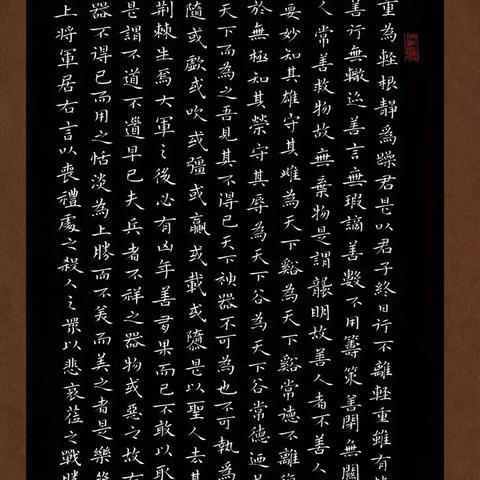 重為輕根靜為躁君是以君子終日行不離輕重雖有
善行無轍迹善言無瑕謫善數不用籌策善閉無關
人常善救物故無棄物是謂襲明故善人者不善人
要妙知其雄守其雌為天下谿為天下谿常德不離復
於無極知其榮守其辱為天下谷為天下谷常德廼
天下而為之吾見其不得已天下神器不可為也不可執為
隨或歔或吹或彊或羸或載或隳是以聖人去甚
荆棘生焉大軍之後必有凶年善者果而已不敢以取
是謂不道不道早已夫兵者不祥之器物或惡之故有
器不得已而用之恬淡為上勝而不美而美之者是樂殺
上將軍居右言以喪禮處之殺人之眾以悲哀莅之戰勝